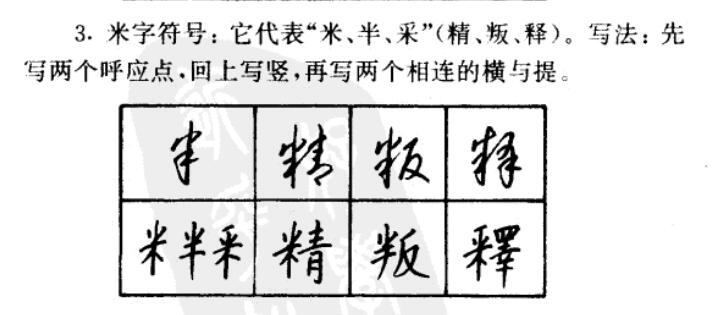 3. 米字符号：它代表“米、半、采”(精、叛、释)。写法：先
写两个呼应点，回上写竖，再写两个相连的横与提。
精 叛 释
米半采 精 叛 釋